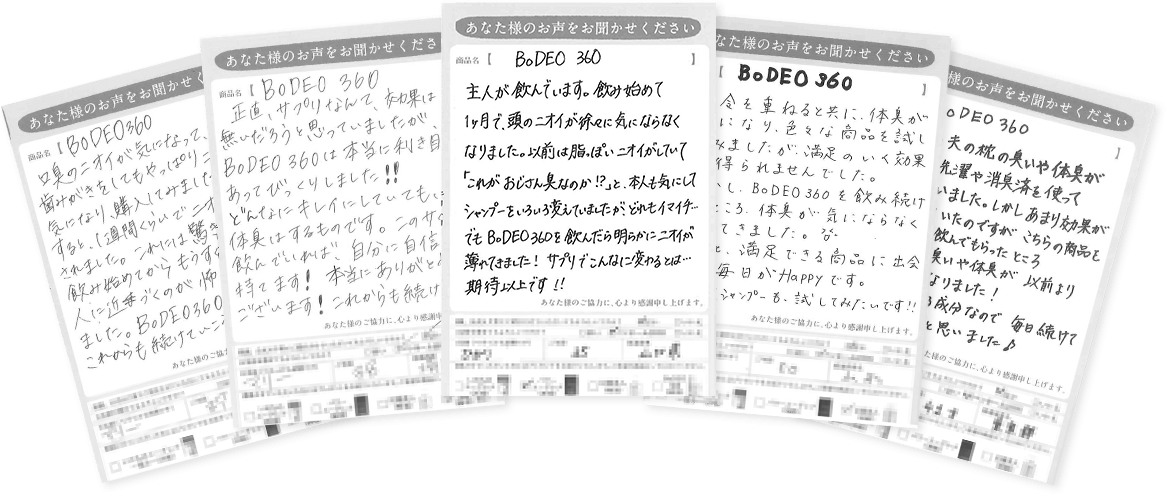 あなた様のお声をお聞かせくださ
商品名【 BODEO360
口臭のニオイが気になって、
歯みがきをしてもやっぱりニ
気になり、購入してみました
すると、1週間くらいでニオ
されました。これには驚き
飲み始めてからもうする
人に近寄づくのが怖
ました。BODEO360
これからも続けていこ
あなた様のご
あなた様のお声をお聞かせくださ
商品名【 BODEO 360
正直、サプリなんて、効果は
無いだろうと思っていましたが、
BODEO360は本当に利き目
あってびっくりしました!!
どんなにキレイにしていても、
体臭はするものです。このサ
飲んでいれば、自分に自信
持てます! 本当にありがと
ございます! これからも続け
あなた様のご協力に、心より感謝申
あなた様のお声をお聞かせください
商品名【 BODEO 360 】
主人が飲んでいます。飲み始めて
1ヶ月で、頭のニオイが徐々に気にならなく
なりました。以前は脂っぽいニオイがしていて
「これがおじさん臭なのか!?」と、本人も気にして
シャンプーをいろいろ変えていましたが、どれもイマイチ…
でもBODEO360を飲んだら明らかにニオイが
薄れてきました! サプリでこんなに変わるとは…
期待以上です!!
あなた様のご協力に、心より感謝申し上げます。
なた様のお声をお聞かせください
【 BODEO 360 】
令を重ねると共に、体臭が
になり、色々な商品を試し
みましたが、満足のいく効果
得られませんでした。
し、BODEO360を飲み続け
ころ、体臭が気にならなく
てきました。
と、満足できる商品に出会
毎日がHappyです。
シャンプーも、試してみたいです!!
あなた様のご協力に、心より感謝申し上げます。
のお声をお聞かせください
ODEO 360 】
夫の枕の臭いや体臭が
洗濯や消臭済を使って
いました。しかしあまり効果が
いたのですが こちらの商品を
飲んでもらったところ
臭いや体臭が 以前より
なりました!
る成分なので 毎日続けて
と思いました♪
た様のご協力に、心より感謝申し上げます。